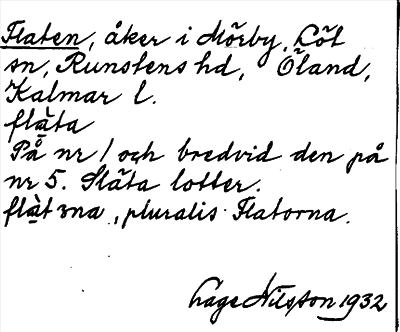 Flaten, åker i Mörby, Löt
sn, Runstens hd, Öland,
Kalmar l.
flàta
På nr 1 och bredvid den på
nr 5. Släta lotter.
pluralis Flatorna.
Lage Nilsson 1932